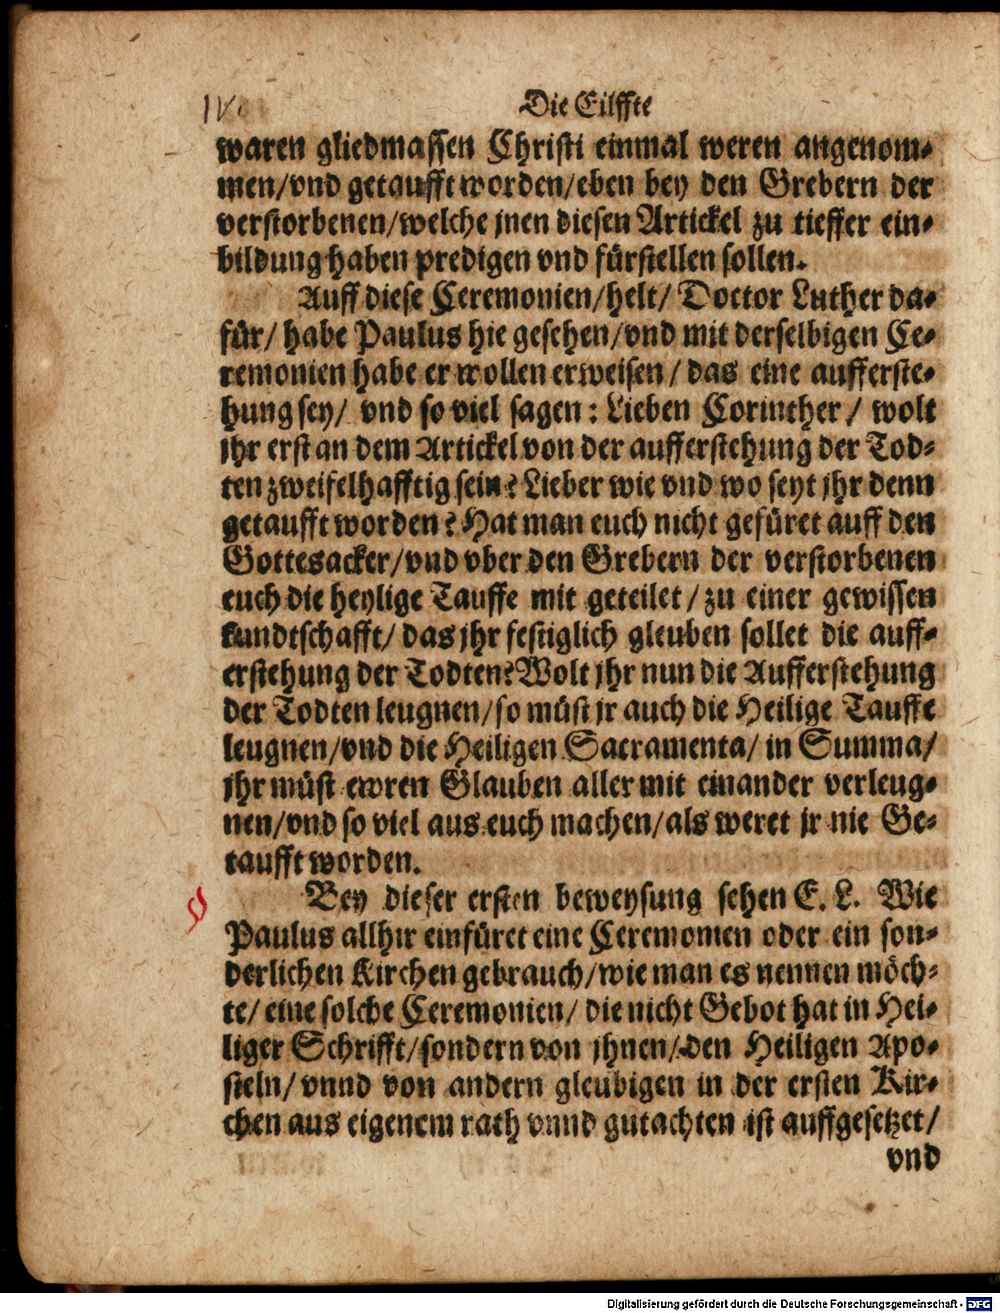 IV.
Die Eilffte
waren gliedmassen Christi einmal weren angenom-
men/vnd getaufft worden/eben bey den Grebern der
verstorbenen/welche jnen diesen Artickel zu tieffer ein-
bildung haben predigen vnd fürstellen sollen.
Auff diese Ceremonien/helt/ Doctor Luther da-
für/ habe Paulus hie gesehen/vnd mit derselbigen Ce-
remonien habe er wollen erweisen/ das eine aufferste-
hung sey/ vnd so viel sagen: Lieben Corinther/ wolt
jhr erst an dem Artickel von der aufferstehung der Tod-
ten zweifelhafftig sein? Lieber wie vnd wo seyt jhr denn
getaufft worden? Hat man euch nicht gefüret auff den
Gottesacker/vnd vber den Grebern der verstorbenen
euch die heylige Tauffe mit geteilet/ zu einer gewissen
kundtschafft/ das jhr festiglich gleuben sollet die auff-
erstehung der Todten? Wolt jhr nun die Aufferstehung
der Todten leugnen/so müst jr auch die Heilige Tauffe
leugnen/vnd die Heiligen Sacramenta/ in Summa/
jhr müst ewren Glauben aller mit einander verleug-
nen/vnd so viel aus euch machen/als weret jr nie Ge-
taufft worden.
Bey dieser ersten beweysung sehen E. L. Wie
Paulus allhir einfüret eine Ceremonien oder ein son-
derlichen Kirchen gebrauch/wie man es nennen möch-
te/ eine solche Ceremonien/ die nicht Gebot hat in Hei-
liger Schrifft/sondern von jhnen/den Heiligen Apo-
steln/ vnnd von andern gleubigen in der ersten Kir-
chen aus eigenem rath vnnd gutachten ist auffgesetzet/
vnd
Digitalisierung gefördert durch die Deutsche Forschungsgemeinschaft - DFG